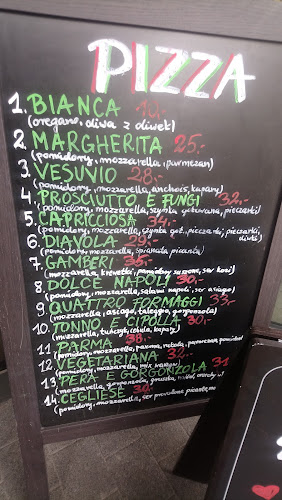 PIZZA
1. BIANCA 10,-
(oregano, oliwa z oliwek)
2. MARGHERITA 25,-
(pomidory, mozzarella, parmezan)
3. VESUVIO 28,-
(pomidory, mozzarella, anchois, kapary)
4. PROSCIUTTO E FUNGI 32,-
(pomidory, mozzarella, szynka gotowana, pieczarki)
5. CAPRICCIOSA 34,-
(pomidory, mozzarella, szynka got., pieczarki, oliwki)
6. DIAVOLA 29,-
(pomidory, mozzarella, spianata picante)
7. GAMBERI 35,-
(mozzarella, krewetki, pomidory suszone, ser kozi)
8. DOLCE NAPOLI 30,-
(pomidory, mozzarella, salami napoli, ser asiago)
9. QUATTRO FORMAGGI 33,-
(mozzarella, asiago, taleggio, gorgonzola)
10. TONNO E CIPOLLA 30,-
(mozzarella, tuńczyk, cebula, kapary)
11. PARMA 36,-
(pomidory, mozzarella, parma, rukola, parmezan, pomidorki)
12. VEGETARIANA 32,-
(pomidory, mozzarella, mix warzyw)
13. PERA E GORGONZOLA 31
(mozzarella, gorgonzola, gruszka, orzechy)
14. CEGLIESE 30,-
(pomidory, mozzarella, ser provolone picante,